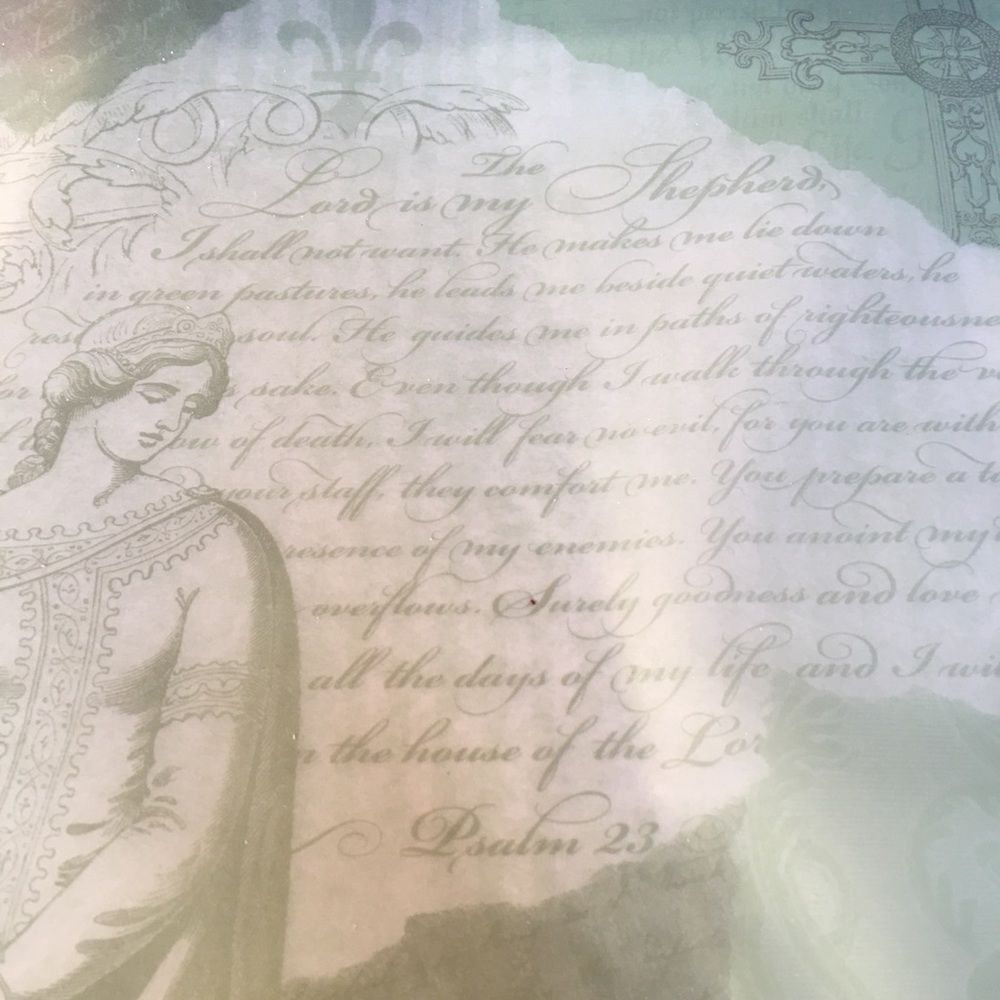 The
Lord is my Shepherd,
I shall not want. He makes me lie down
in green pastures, he leads me beside quiet waters, he
soul. He guides me in paths of righteousne
sake. Even though I walk through the
of death, I will fear no evil, for you are with
your staff, they comfort me. You prepare a
resence of my enemies. You anoint my
overflows. Surely goodness and love
all the days of my life and I wi
the house of the Lor
Psalm 23